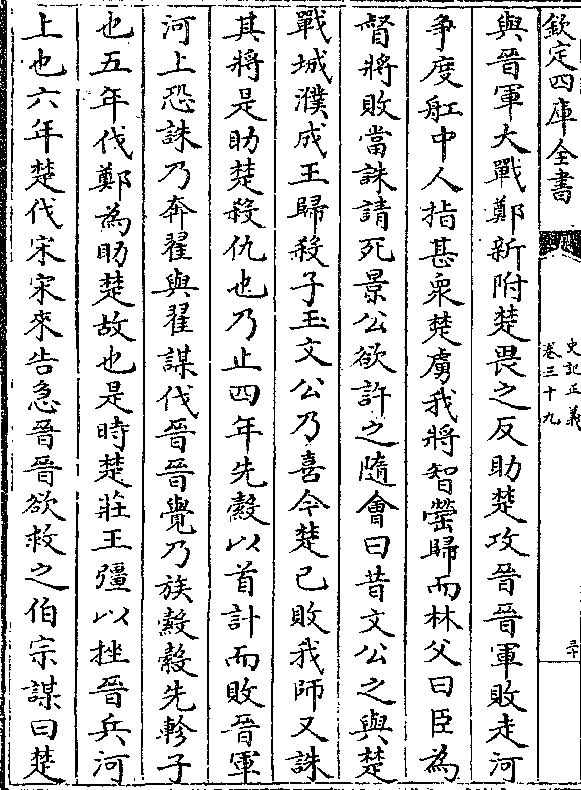 欽定四庫全書
史記正義
卷三十九
與晉軍大戰鄭新附楚畏之反助楚攻晉晉軍敗走河
爭度舡中人指甚衆楚虜我將智罃歸而林父曰臣為
督將敗當誅請死景公欲許之隨會曰昔文公之與楚
戰城濮成王歸殺子玉文公乃喜今楚已敗我師又誅
其將是助楚殺仇也乃止四年先縠以首計而敗晉軍
河上恐誅乃奔翟與翟謀伐晉晉覺乃族縠縠先軫子
也五年伐鄭為助楚故也是時楚莊王彊以挫晉兵河
上也六年楚伐宋宋來告急晉晉欲救之伯宗謀曰楚